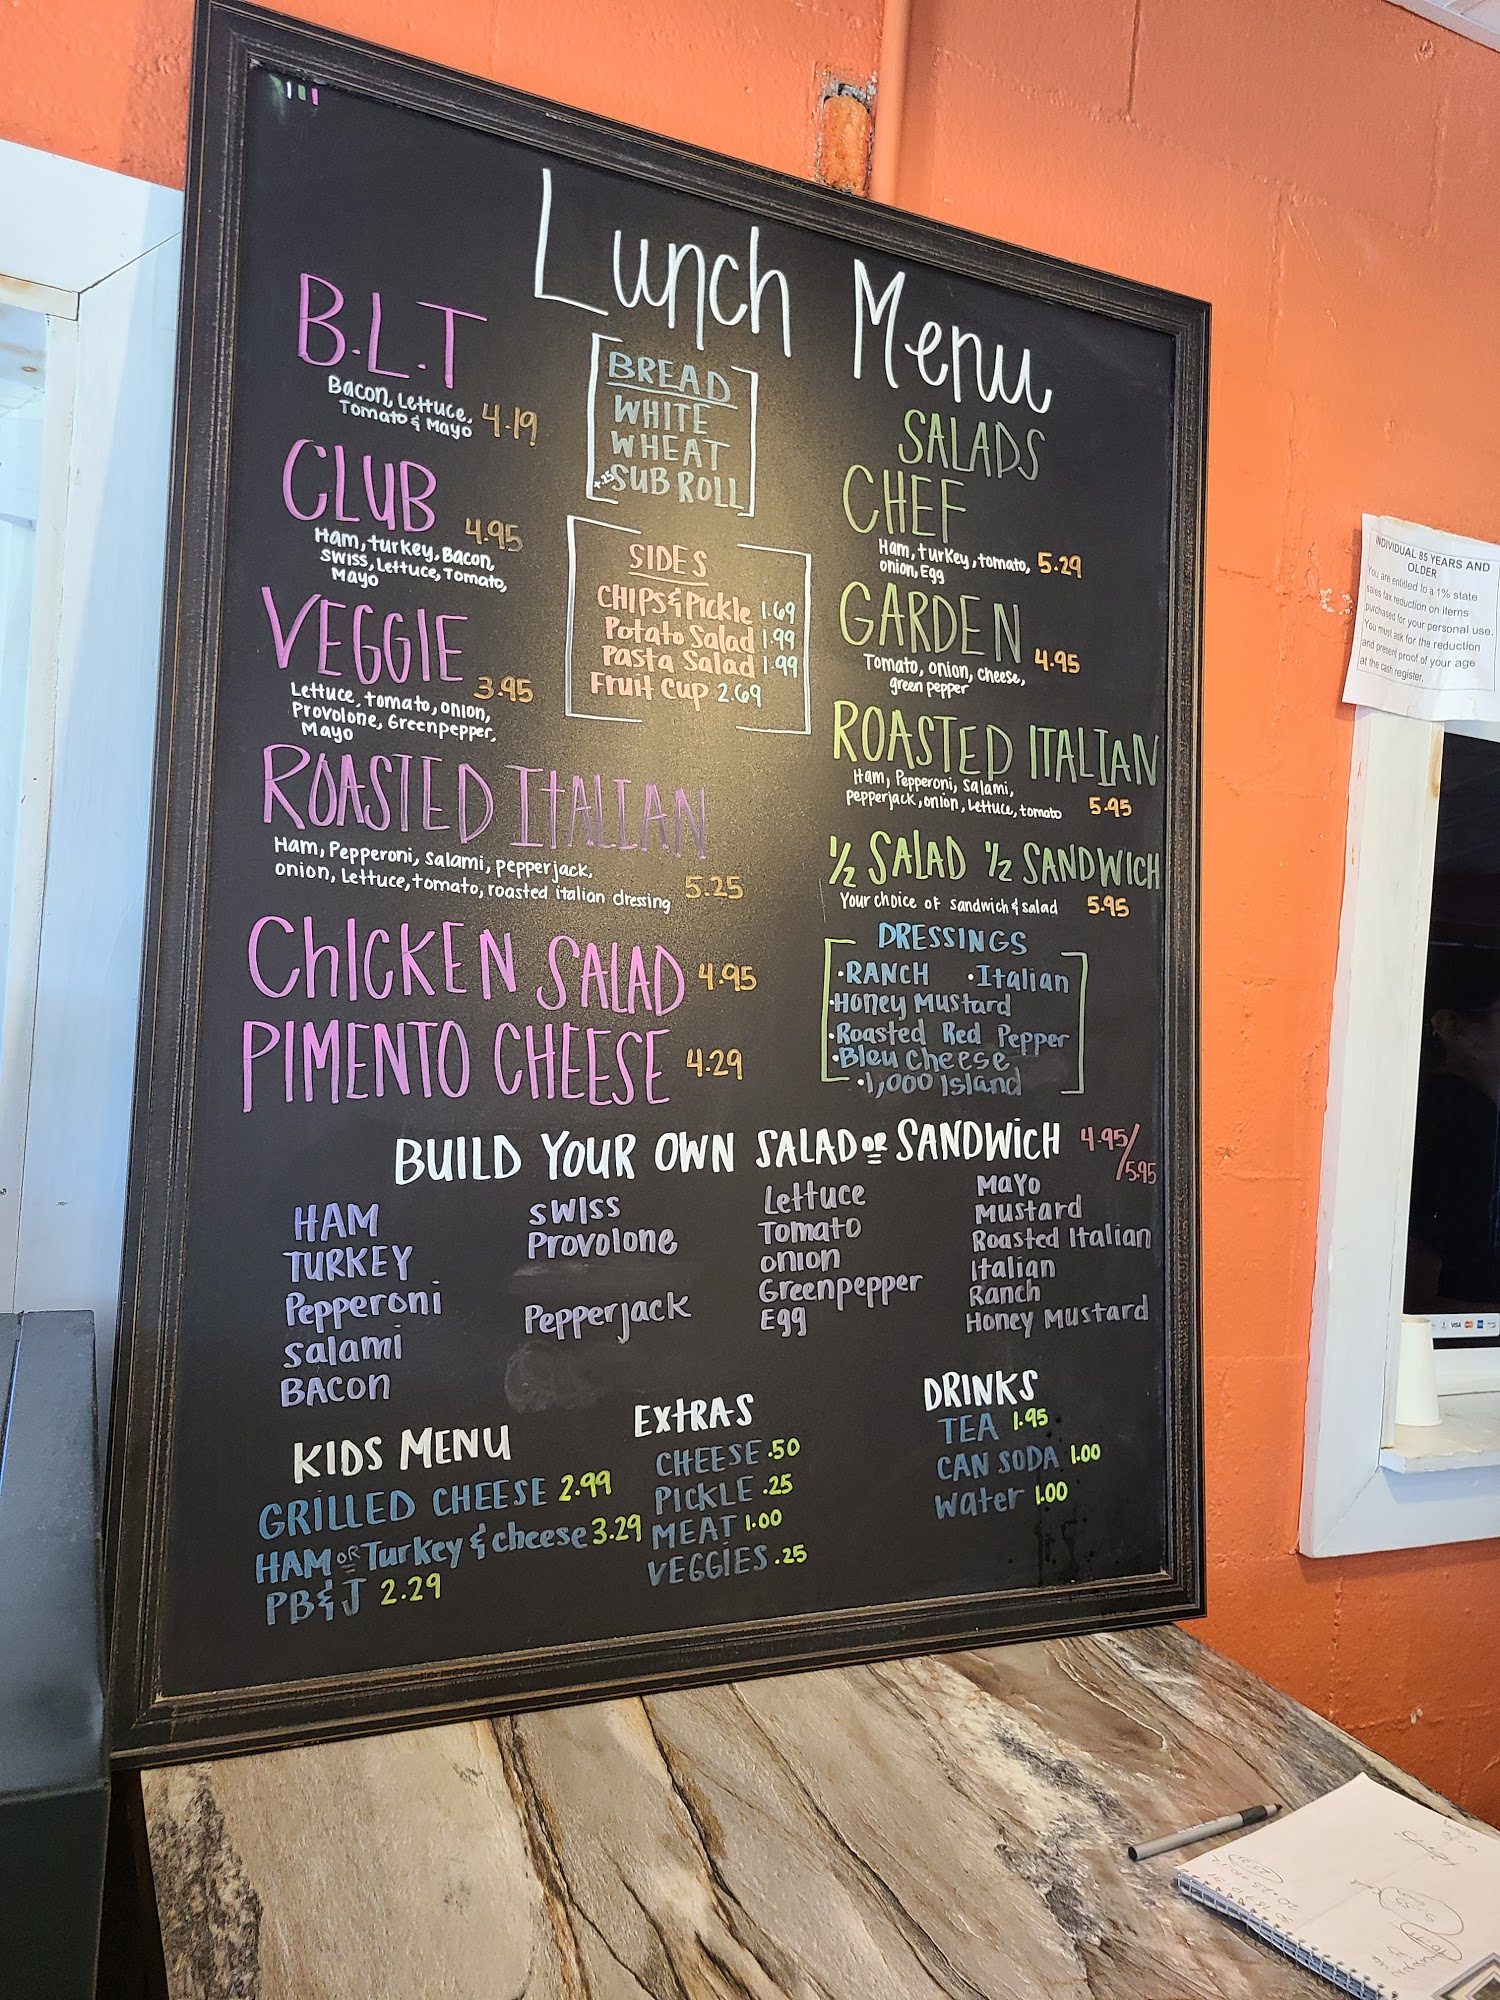 Lunch Menu
B.L.T
Bacon, Lettuce,
Tomato & Mayo 4.19
CLUB 4.95
Ham, turkey, Bacon,
swiss, Lettuce, Tomato,
Mayo
VEGGIE 3.95
Lettuce, tomato, onion,
Provolone, Greenpepper,
Mayo
ROASTED ITALIAN
Ham, Pepperoni, salami, pepperjack,
onion, Lettuce, tomato, roasted italian dressing 5.25
ChICKEN SALAD 4.95
PIMENTO CHEESE 4.29
BREAD
WHITE
WHEAT
+.25 SUB ROLL
SIDES
CHIPS & Pickle 1.69
Potato Salad 1.99
Pasta Salad 1.99
Fruit Cup 2.69
SALADS
CHEF
Ham, turkey, tomato, 5.29
onion, Egg
GARDEN 4.95
Tomato, onion, cheese,
green pepper
ROASTED ITALIAN
Ham, Pepperoni, Salami,
pepperjack, onion, Lettuce, tomato 5.95
1/2 SALAD 1/2 SANDWICH
Your choice of sandwich & salad 5.95
DRESSINGS
•RANCH •Italian
•Honey Mustard
•Roasted Red Pepper
•Bleu cheese
•1,000 island
BUILD YOUR OWN SALAD OR SANDWiCH 4.95/5.95
HAM
TURKEY
Pepperoni
salami
BACON
SWISS
Provolone
Pepperjack
Lettuce
Tomato
onion
Greenpepper
Egg
MaYo
Mustard
Roasted Italian
Italian
Ranch
Honey Mustard
KIDS MENU
GRILLED CHEESE 2.99
HAM OR Turkey & cheese 3.29
PB&J 2.29
ExtRAS
CHEESE .50
PICKLE .25
MEAT 1.00
VEGGIES .25
DRINKS
TEA 1.95
CAN SODA 1.00
Water 1.00
INDIVIDUAL 85 YEARS AND
OLDER
You are entitled to a 1% state
sales tax reduction on items
purchased for your personal use.
You must ask for the reduction
and present proof of your age
at the cash register.
VISA